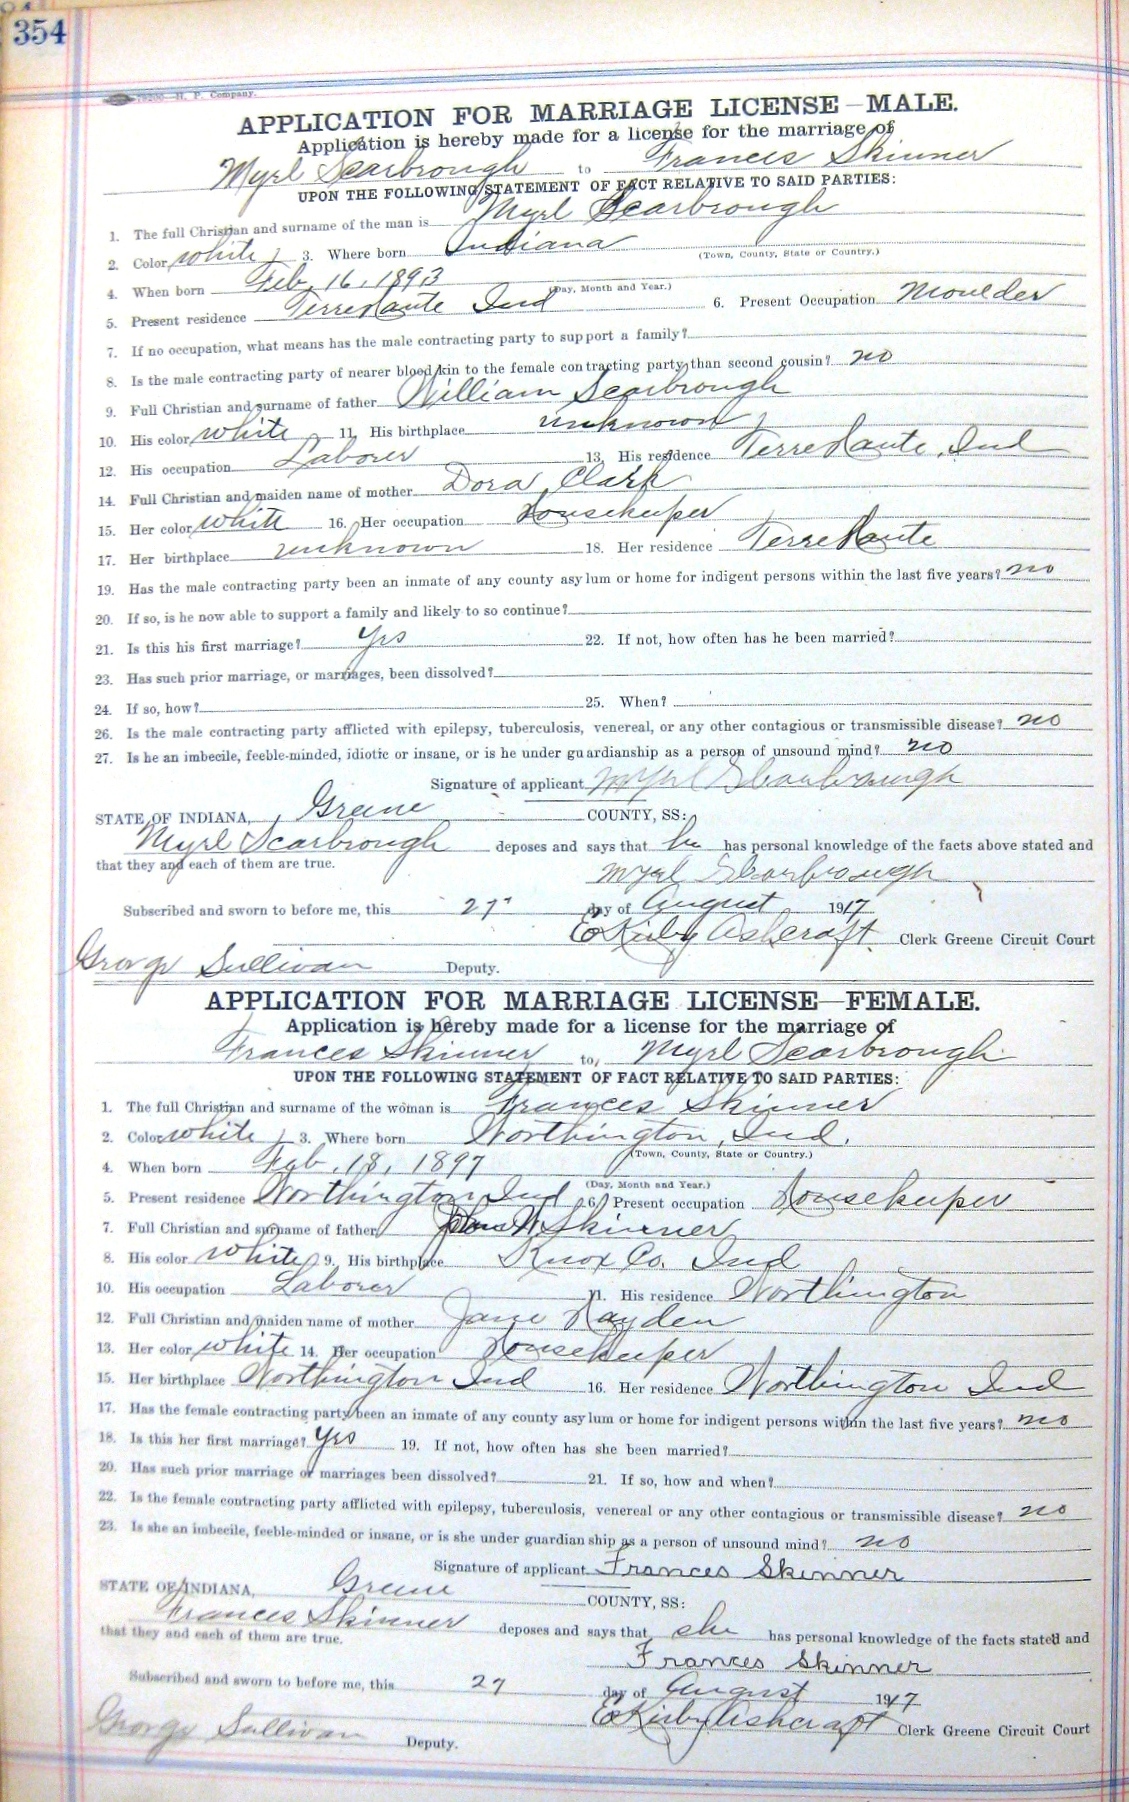 354
79200—N. P. Company.
APPLICATION FOR MARRIAGE LICENSE—MALE.
Application is hereby made for a license for the marriage of
Myrl Scarbrough to Frances Skinner
UPON THE FOLLOWING STATEMENT OF FACT RELATIVE TO SAID PARTIES:
1. The full Christian and surname of the man is Myrl Scarbrough
2. Color white 3. Where born Indiana
(Town, County, State or Country.)
4. When born Feb. 16, 1893
(Day, Month and Year.)
5. Present residence Terre Haute Ind 6. Present Occupation Moulder
7. If no occupation, what means has the male contracting party to support a family?
8. Is the male contracting party of nearer blood kin to the female contracting party than second cousin? no
9. Full Christian and surname of father William Scarbrough
10. His color white 11. His birthplace unknown
12. His occupation Laborer 13. His residence Terre Haute, Ind
14. Full Christian and maiden name of mother Dora Clark
15. Her color white 16. Her occupation Housekeeper
17. Her birthplace unknown 18. Her residence Terre Haute
19. Has the male contracting party been an inmate of any county asylum or home for indigent persons within the last five years? no
20. If so, is he now able to support a family and likely to so continue?
21. Is this his first marriage? Yes 22. If not, how often has he been married?
23. Has such prior marriage, or marriages, been dissolved?
24. If so, how? 25. When?
26. Is the male contracting party afflicted with epilepsy, tuberculosis, venereal, or any other contagious or transmissible disease? no
27. Is he an imbecile, feeble-minded, idiotic or insane, or is he under guardianship as a person of unsound mind? no
Signature of applicant Myrl Scarbrough
STATE OF INDIANA, Greene COUNTY, SS:
Myrl Scarbrough deposes and says that he has personal knowledge of the facts above stated and
that they and each of them are true.
Myrl Scarbrough
Subscribed and sworn to before me, this 27" day of August 1917
E Kirby Ashcraft Clerk Greene Circuit Court
George Sullivan Deputy.
APPLICATION FOR MARRIAGE LICENSE—FEMALE.
Application is hereby made for a license for the marriage of
Frances Skinner to, Myrl Scarbrough
UPON THE FOLLOWING STATEMENT OF FACT RELATIVE TO SAID PARTIES:
1. The full Christian and surname of the woman is Frances Skinner
2. Color white 3. Where born Worthington, Ind.
(Town, County, State or Country.)
4. When born Feb. 18, 1897
(Day, Month and Year.)
5. Present residence Worthington Ind 6. Present occupation Housekeeper
7. Full Christian and surname of father John W. Skinner
8. His color white 9. His birthplace Knox Co. Ind
10. His occupation Laborer 11. His residence Worthington
12. Full Christian and maiden name of mother Jane Hayden
13. Her color white 14. Her occupation Housekeeper
15. Her birthplace Worthington Ind 16. Her residence Worthington Ind
17. Has the female contracting party been an inmate of any county asylum or home for indigent persons within the last five years? no
18. Is this her first marriage? Yes 19. If not, how often has she been married?
20. Has such prior marriage or marriages been dissolved? 21. If so, how and when?
22. Is the female contracting party afflicted with epilepsy, tuberculosis, venereal or any other contagious or transmissible disease? no
23. Is she an imbecile, feeble-minded or insane, or is she under guardianship as a person of unsound mind? no
Signature of applicant Frances Skinner
STATE OF INDIANA, Greene COUNTY, SS:
Frances Skinner deposes and says that she has personal knowledge of the facts stated and
that they and each of them are true.
Frances Skinner
Subscribed and sworn to before me, this 27 day of August 1917
E Kirby Ashcraft Clerk Greene Circuit Court
George Sullivan Deputy.